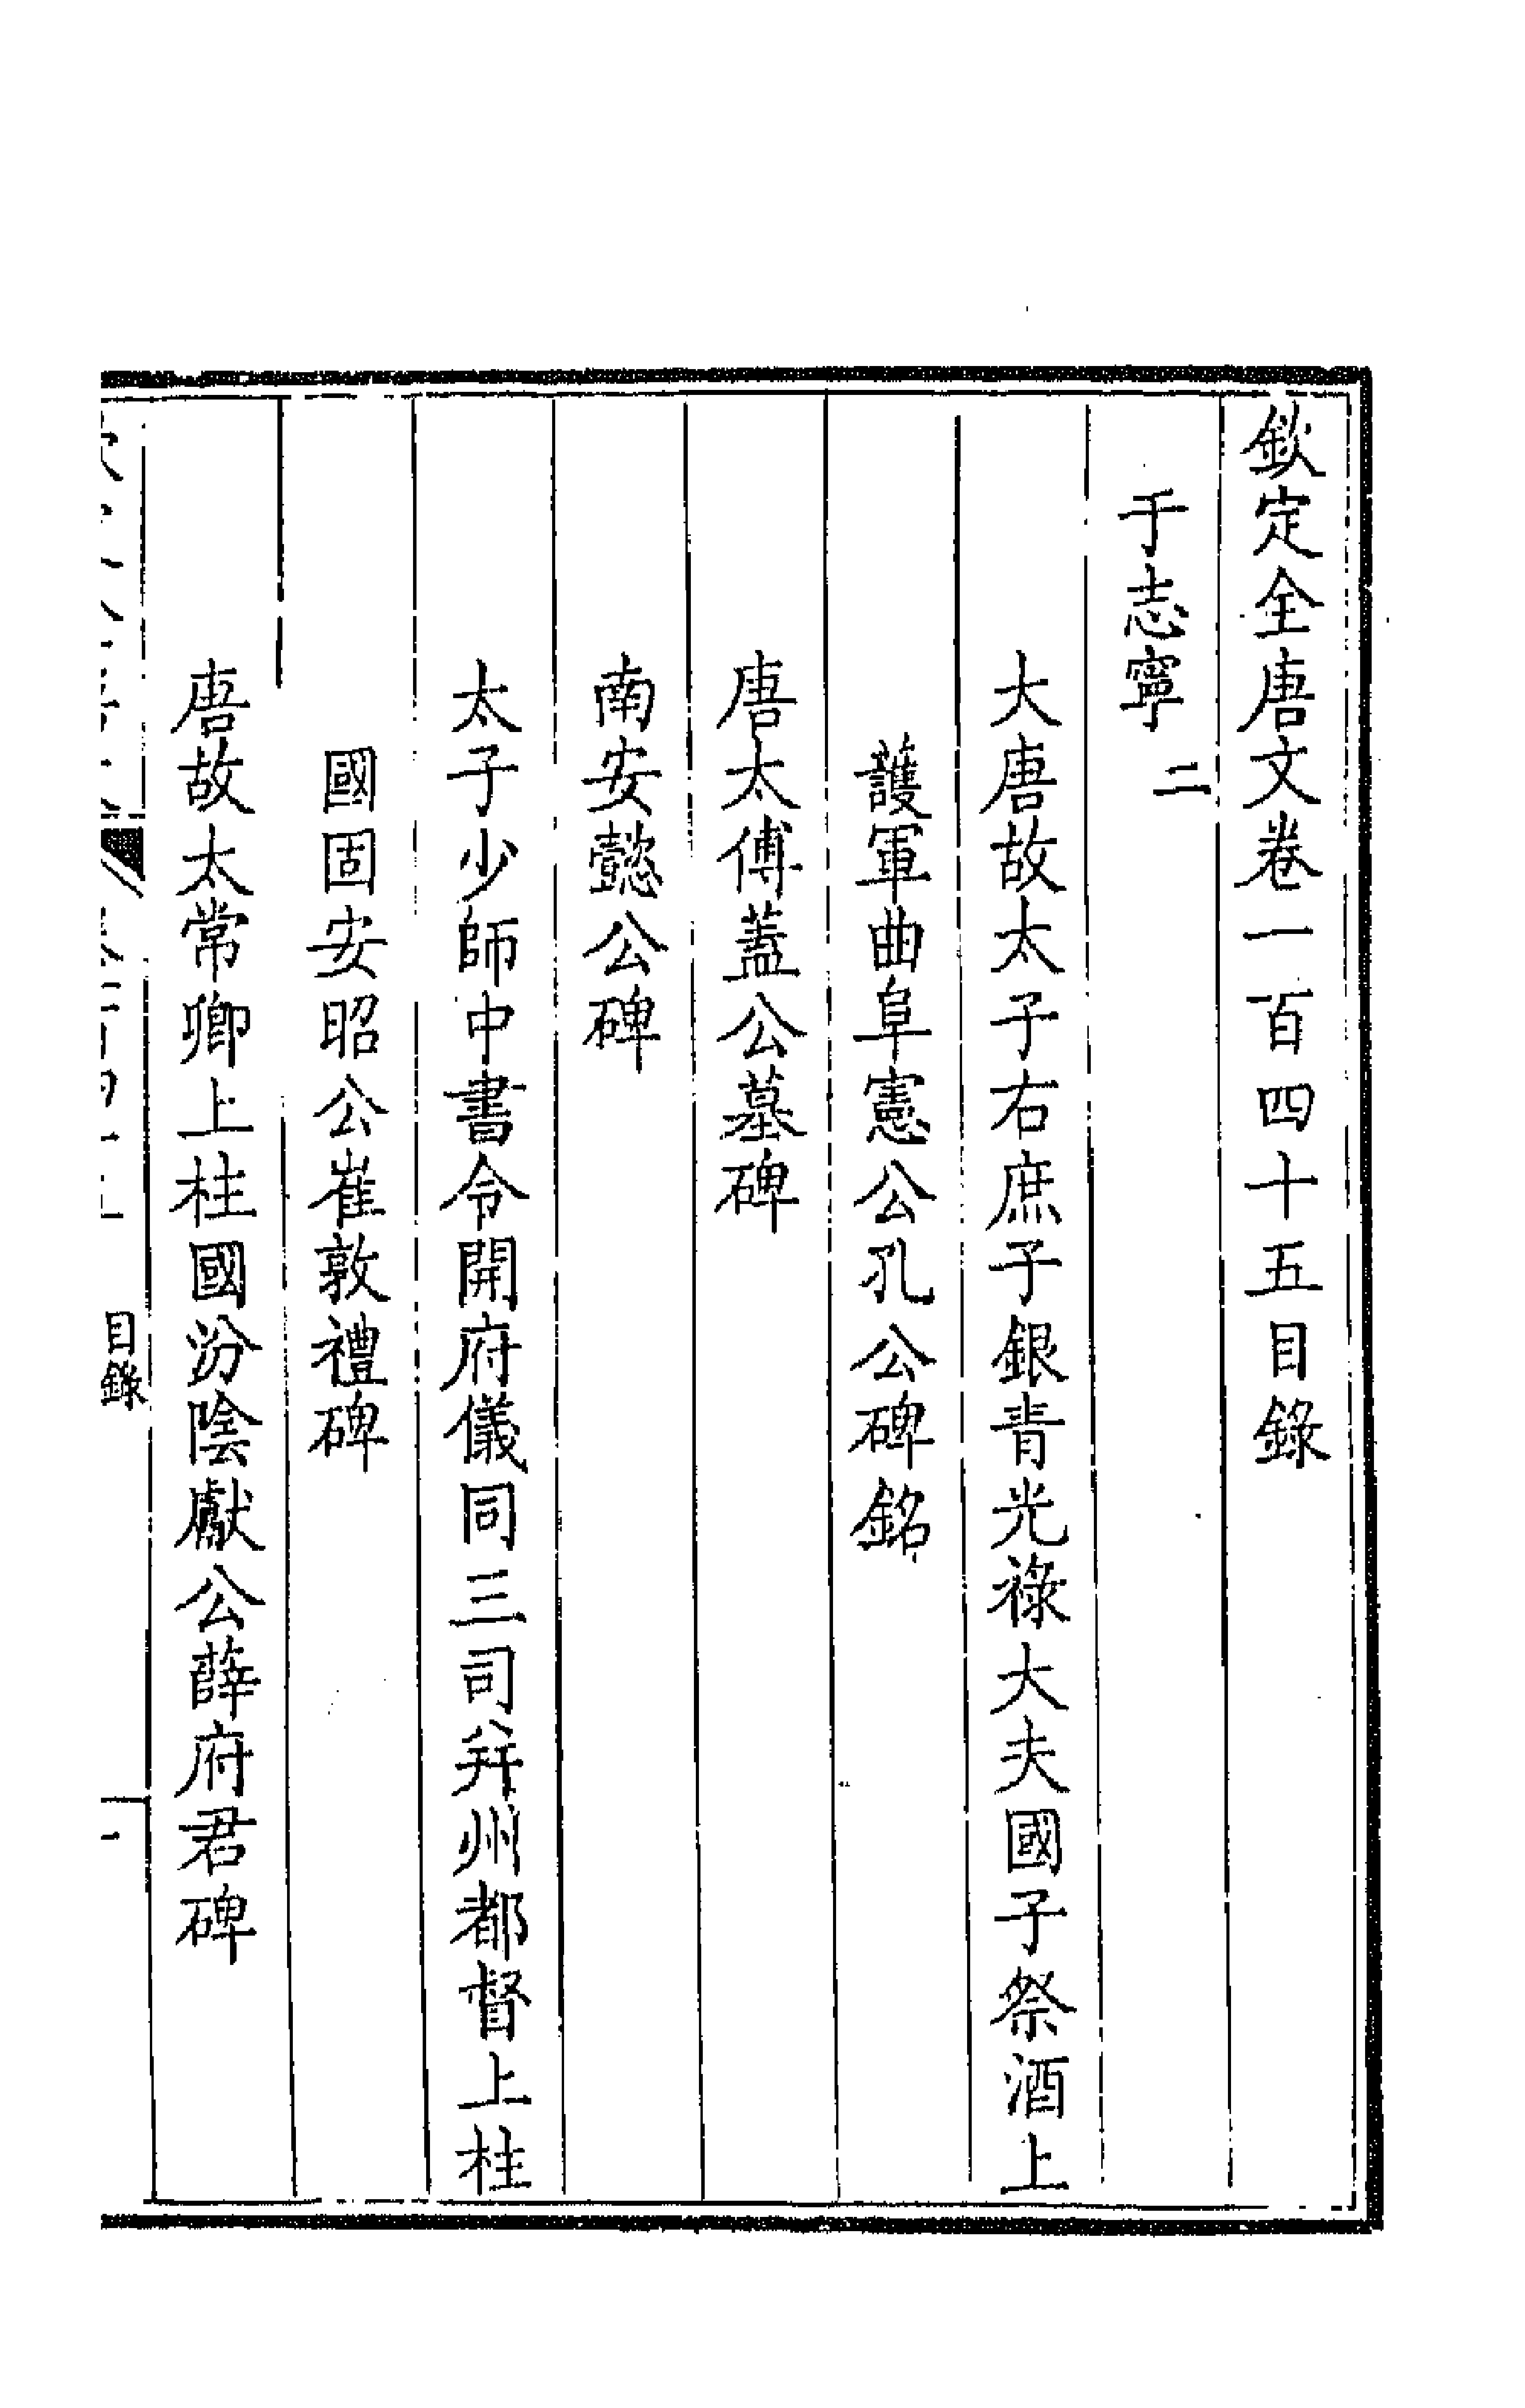 欽定全唐文卷一百四十五目錄
于志寧二
大唐故太子右庶子銀青光祿大夫國子祭酒上
護軍曲阜憲公孔公碑銘
唐太傅蓋公墓碑
南安懿公碑
太子少師中書令開府儀同三司并州都督上柱
國固安昭公崔敦禮碑
唐故太常卿上柱國汾陰獻公薛府君碑
目錄